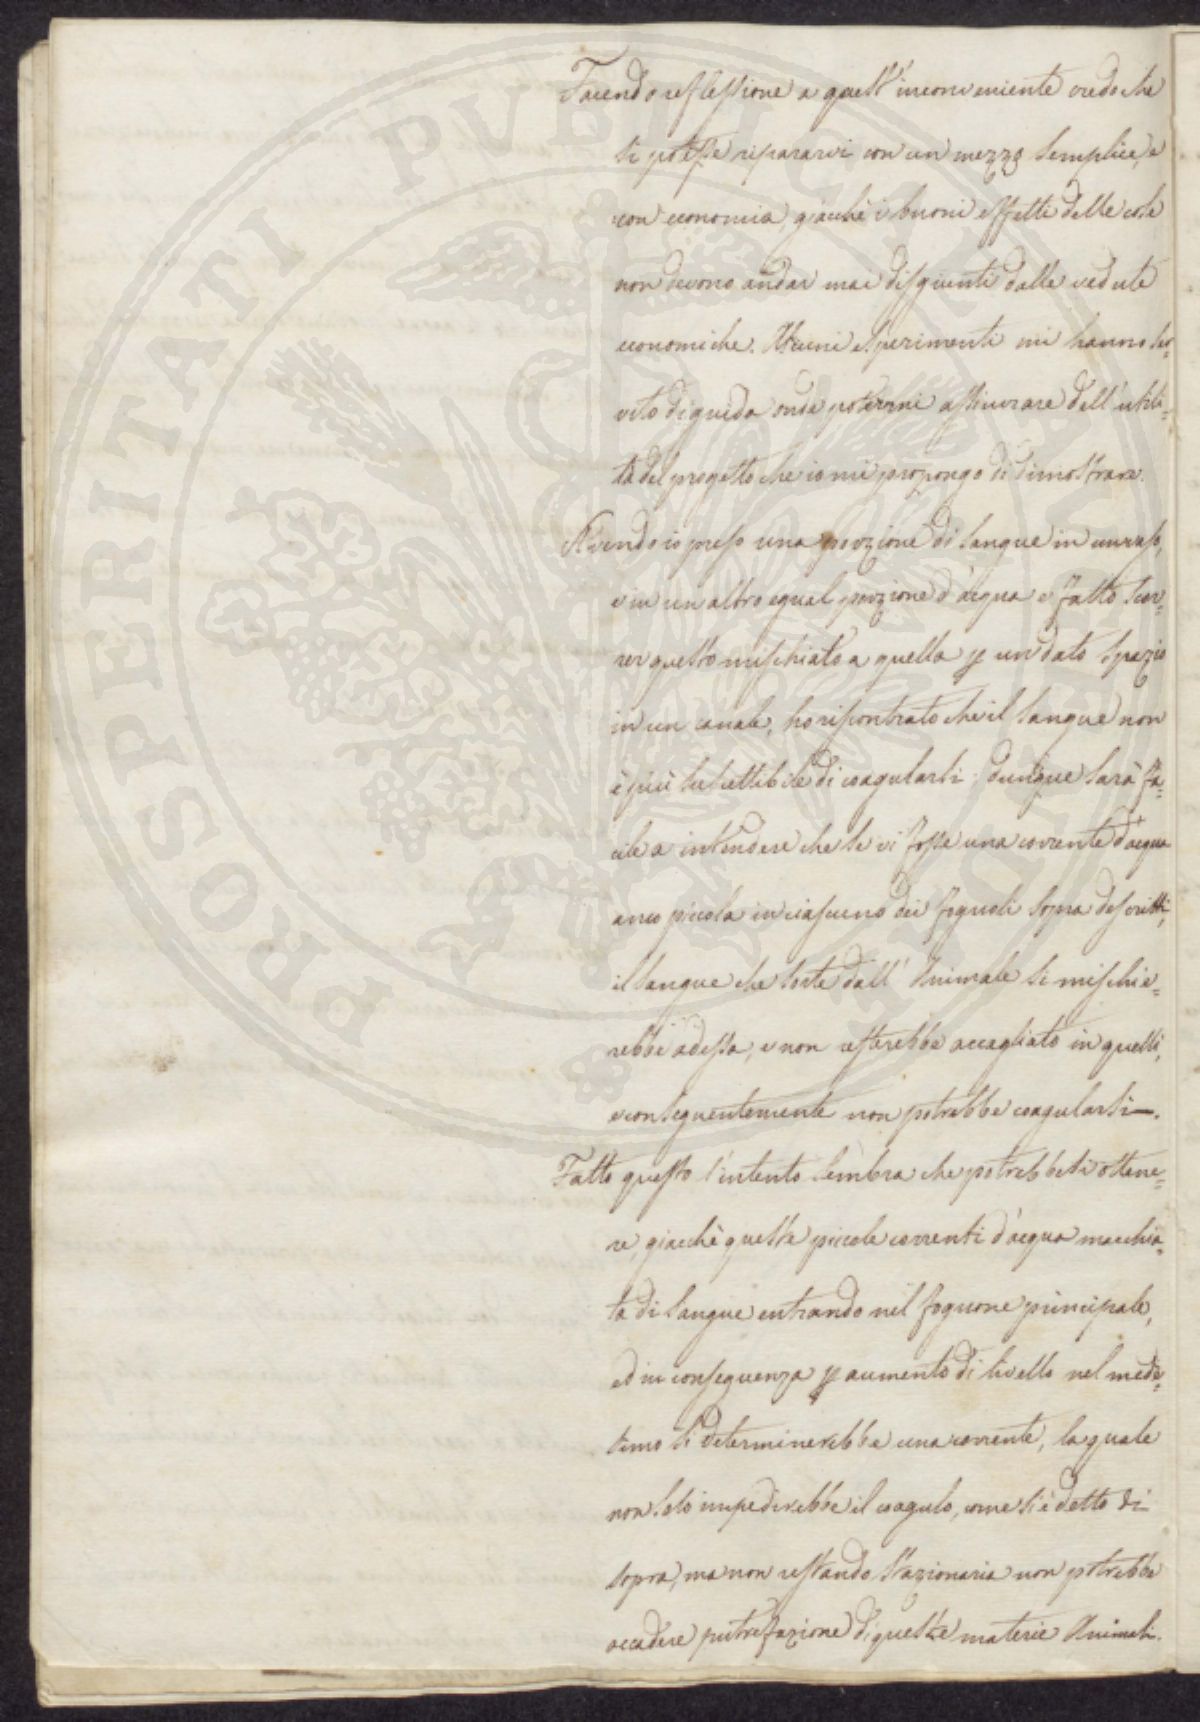 Facendo reflessione a quest'inconveniente credo che
si potesse ripararvi con un mezzo semplice, e
con economia, giacchè i buoni effetti delle cose
non devono andar mai disgiunti dalle vedute
economiche. Alcuni esperimenti mi hanno ser=
vito di guida onde potermi assicurare dell'utili=
tà del progetto che io mi propongo di dimostrare.
Avendo io preso una porzione di sangue in un vaso,
e in un altro egual porzione d'acqua e fatto scor=
rer questo mischiato a quella p un dato spazio
in un canale, ho riscontrato che il sangue non
è più suscettibile di coagularsi: dunque sarà fa=
cile a intendere che se vi fosse una corrente d'acqua
anco piccola in ciascuno dei fognoli sopra descritti,
il sangue che sorte dall'Animale si mischie=
rebbe ad essa, e non resterebbe accagliato in quelli,
e conseguentemente non potrebbe coagularsi.
Fatto questo l'intento sembra che potrebbesi ottene=
re, giacchè queste piccole correnti d'acqua macchia=
ta di sangue entrando nel fognone principale,
ed in conseguenza p aumento di livello nel mede=
simo si determinerebbe una corrente, la quale
non solo impedirebbe il coagulo, come si è detto di
sopra, ma non restando stazionaria non potrebbe
accadere putrefazione di queste materie Animali.
PROSPERITATI PVBLICAE